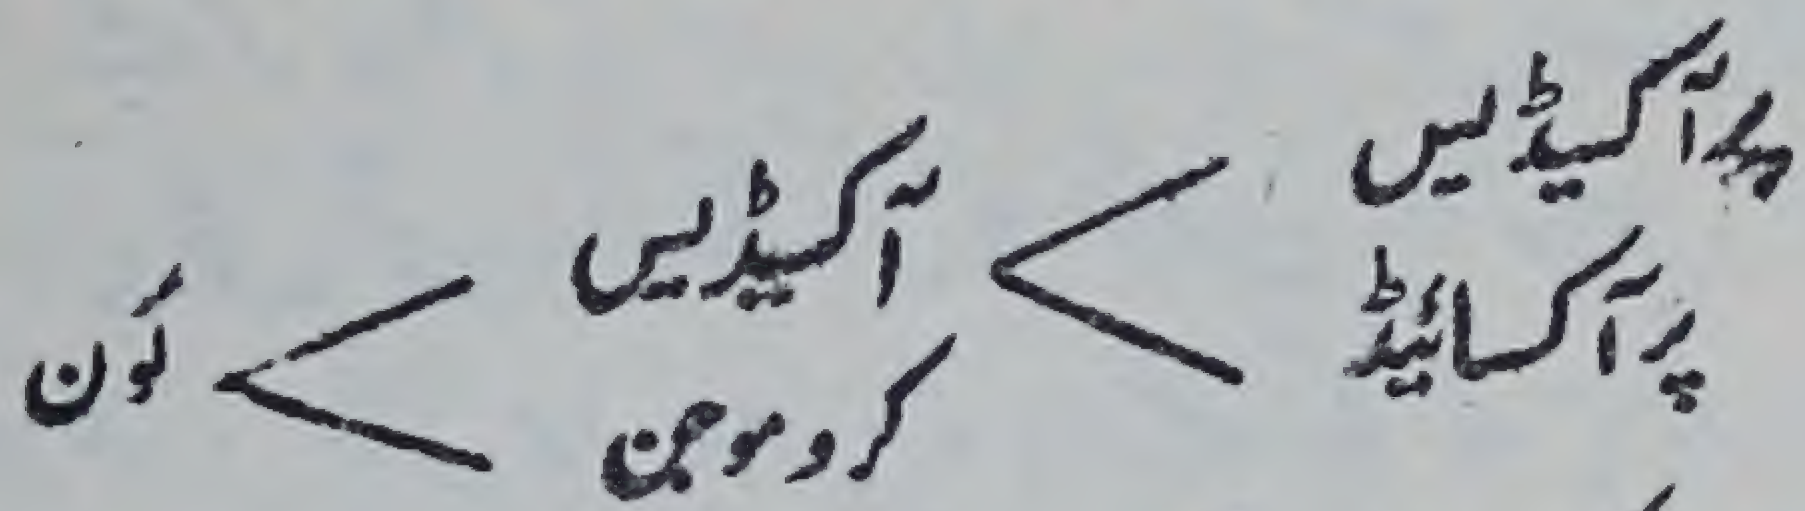 پرآکسیڈیس
پرآکسائیڈ
آکسیڈیس
کروموجن
لَون